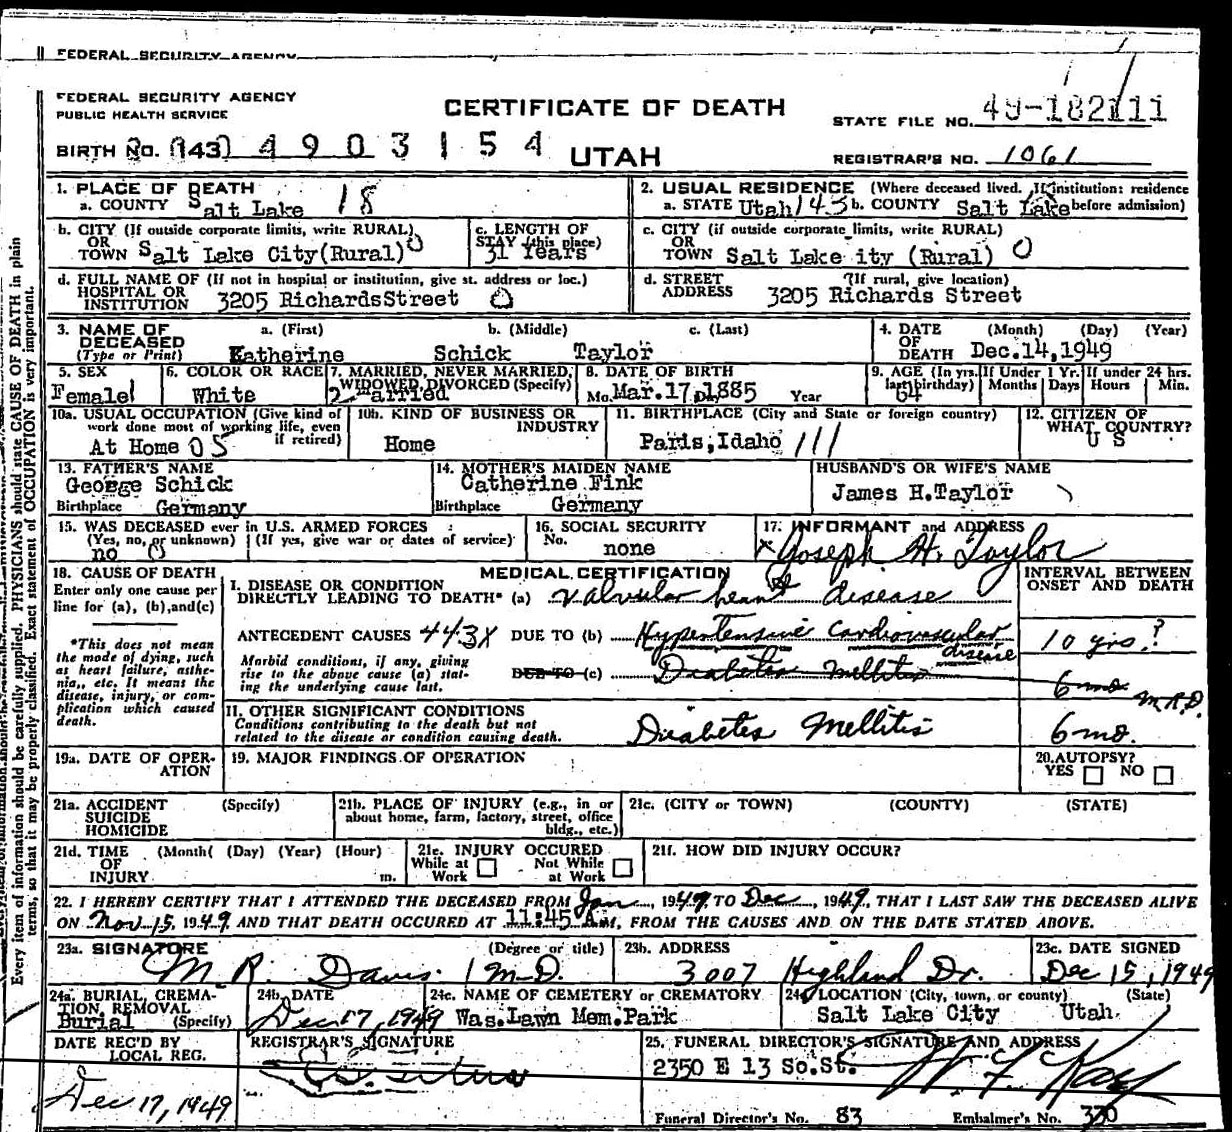 FEDERAL SECURITY AGENCY
FEDERAL SECURITY AGENCY
PUBLIC HEALTH SERVICE
CERTIFICATE OF DEATH
STATE FILE NO. 49-182111
BIRTH NO. (143) 4903154
UTAH
REGISTRAR'S NO. 1061
Every item of information should be carefully supplied. PHYSICIANS should state CAUSE OF DEATH in plain
terms, so that it may be properly classified. Exact statement of OCCUPATION is very important.
1. PLACE OF DEATH
a. COUNTY Salt Lake 18
2. USUAL RESIDENCE (Where deceased lived. If institution: residence
a. STATE Utah 143 b. COUNTY Salt Lake before admission)
b. CITY (If outside corporate limits, write RURAL)
OR
TOWN Salt Lake City(Rural) 0
c. LENGTH OF
STAY (this place)
31 Years
c. CITY (if outside corporate limits, write RURAL)
OR
TOWN Salt Lake ity (Rural) 0
d. FULL NAME OF (If not in hospital or institution, give st. address or loc.)
HOSPITAL OR
INSTITUTION 3205 RichardsStreet 0
d. STREET (If rural, give location)
ADDRESS 3205 Richards Street
3. NAME OF DECEASED
(Type or Print)
a. (First) b. (Middle) c. (Last)
Katherine Schick Taylor
4. DATE OF DEATH
(Month) (Day) (Year)
Dec.14,1949
5. SEX
Female 1
6. COLOR OR RACE
White
7. MARRIED, NEVER MARRIED,
WIDOWED, DIVORCED (Specify)
2 Married
8. DATE OF BIRTH
Mo. Mar.17,1885 Year
9. AGE (In yrs. last birthday)
64
If Under 1 Yr. Months Days
If under 24 hrs. Hours Min.
10a. USUAL OCCUPATION (Give kind of
work done most of working life, even
if retired)
At Home 05
10b. KIND OF BUSINESS OR
INDUSTRY
Home
11. BIRTHPLACE (City and State or foreign country)
Paris,Idaho 111
12. CITIZEN OF
WHAT COUNTRY?
U S
13. FATHER'S NAME
George Schick
Birthplace Germany
14. MOTHER'S MAIDEN NAME
Catherine Fink
Birthplace Germany
HUSBAND'S OR WIFE'S NAME
James H.Taylor
15. WAS DECEASED ever in U.S. ARMED FORCES
(Yes, no, or unknown) (If yes, give war or dates of service)
no 0
16. SOCIAL SECURITY
No. none
17. INFORMANT and ADDRESS
x Joseph H. Taylor
18. CAUSE OF DEATH
Enter only one cause per
line for (a), (b), and (c)
*This does not mean
the mode of dying, such
as heart failure, asthe-
nia, etc. It means the
disease, injury, or com-
plication which caused
death.
MEDICAL CERTIFICATION
INTERVAL BETWEEN
ONSET AND DEATH
I. DISEASE OR CONDITION
DIRECTLY LEADING TO DEATH* (a) Valvular heart disease
ANTECEDENT CAUSES 443X DUE TO (b) Hypertensive Cardiovascular disease 10 yrs.?
Morbid conditions, if any, giving
rise to the above cause (a) stat-
ing the underlying cause last.
DUE TO (c) Diabetes Mellitis 6 mo. M.R.D.
II. OTHER SIGNIFICANT CONDITIONS
Conditions contributing to the death but not
related to the disease or condition causing death.
Diabetes Mellitis 6 mo.
19a. DATE OF OPER-
ATION
19. MAJOR FINDINGS OF OPERATION
20. AUTOPSY?
YES NO
21a. ACCIDENT (Specify)
SUICIDE
HOMICIDE
21b. PLACE OF INJURY (e.g., in or
about home, farm, factory, street, office
bldg., etc.)
21c. (CITY or TOWN) (COUNTY) (STATE)
21d. TIME (Month( (Day) (Year) (Hour)
OF
INJURY m.
21e. INJURY OCCURED
While at Work Not While at Work
21f. HOW DID INJURY OCCUR?
22. I HEREBY CERTIFY THAT I ATTENDED THE DECEASED FROM Jan, 1949, TO Dec, 1949, THAT I LAST SAW THE DECEASED ALIVE
ON Nov. 15, 1949, AND THAT DEATH OCCURED AT 11:45 A.M, FROM THE CAUSES AND ON THE DATE STATED ABOVE.
23a. SIGNATURE (Degree or title)
M. R. Davis. M.D.
23b. ADDRESS
3007 Highland Dr.
23c. DATE SIGNED
Dec 15, 1949
24a. BURIAL, CREMA-
TION, REMOVAL
Burial (Specify)
24b. DATE
Dec 17, 1949
24c. NAME OF CEMETERY or CREMATORY
Was.Lawn Mem.Park
24d. LOCATION (City, town, or county) (State)
Salt Lake City Utah
DATE REC'D BY
LOCAL REG.
Dec 17, 1949
REGISTRAR'S SIGNATURE
25. FUNERAL DIRECTOR'S SIGNATURE AND ADDRESS
2350 E 13 So.St.
Funeral Director's No. 83 Embalmer's No. 330